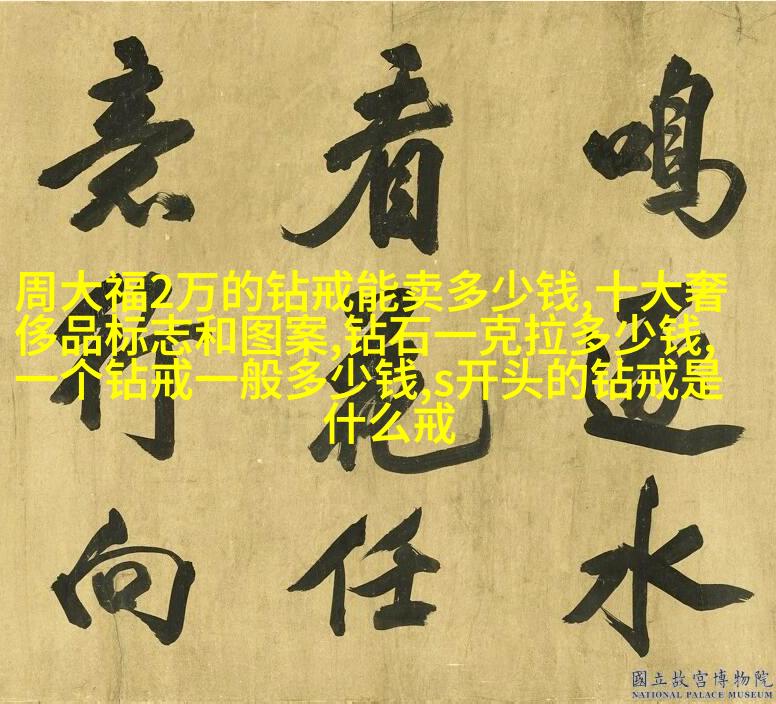 鳴逐水
看花任
意行向
周大福2万的钻戒能卖多少钱,十大奢
侈品标志和图案,钻石一克拉多少钱,
一个钻戒一般多少钱,s开头的钻戒是
什么戒
國立故宮博物院
NATIONAL PALACE MUSEUM